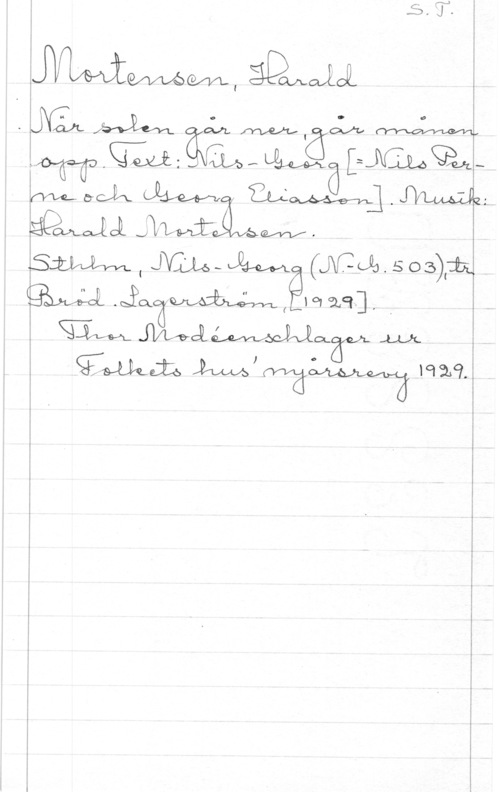 S. T.
Mortensen, Harald
När solen går ner, går månen
opp. Text: Nils-Georg [= Nils Per-
ne och Georg Eliasson]. Musik:
Harald Mortensen.
Sthlm, Nils-Georg (N.-G. 503), tr.
Bröd. Lagerström, [1929].
Thor Modéenschlager ur
Folkets hus' nyårsrevy 1929.